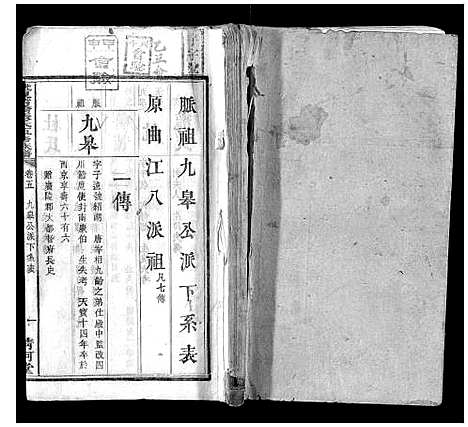 脈祖九皋公派下系表
原曲江八派祖 凡七傳
一傳
脈祖
九皋
字子遠號頻湖 唐宰相九齡之弟仕殿中監改四
川節度使封南康伯 生失考 天寶十四年卒於
西京享壽六十有六
贈廣陵郡大都督府長史
卷五
九皋公派下系表
一
清河堂
會驗